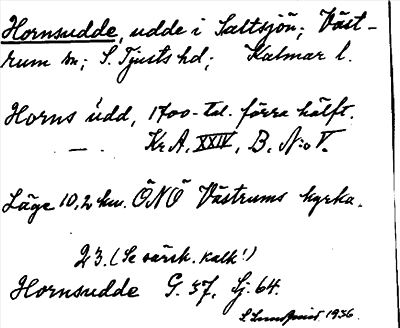 Hornsudde, udde i Saltsjön; Väst-
rum sn; S. Tjusts hd; Kalmar l.
Horns udd, 1700-tal. förra hälft.
— . Kr. A. XXIV, B. N:o V.
Läge 10,2 km. ÖNÖ Västrums kyrka.
23. (Se särsk. kalk!)
Hornsudde G. 57, Sj. 64.
S. Lundquist 1936.